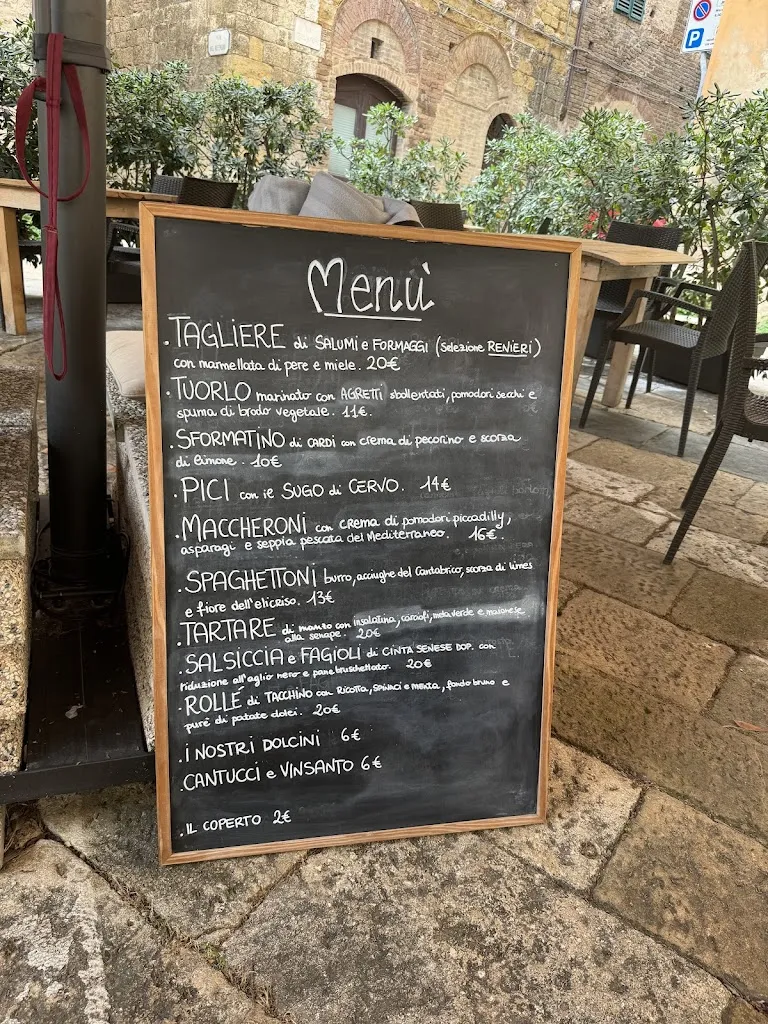 Menù
.TAGLIERE di SALUMI e FORMAGGI (selezione RENIERI)
con marmellata di pere e miele. 20€
.TUORLO marinato con AGRETTI sbollentati, pomodori secchi e
spuma di brodo vegetale. 11€.
.SFORMATINO di CARDI con crema di pecorino e scorza
di limone. 10€
.PICI con il SUGO di CERVO. 14€
.MACCHERONI con crema di pomodori piccadilly,
asparagi e seppia pescata del Mediterraneo. 16€.
.SPAGHETTONI burro, acciughe del Cantabrico, scorza di limes
e fiore dell'elicriso. 13€
.TARTARE di manzo con insalatina, carciofi, mela verde e maionese
alla senape. 20€
.SALSICCIA e FAGIOLI di CINTA SENESE DOP. con
riduzione all'aglio nero e pane bruschettato. 20€
.ROLLÉ di TACCHINO con RICOTTA, SPINACI e MENTA, fondo bruno e
purè di patate dolci. 20€
.I NOSTRI DOLCINI 6€
.CANTUCCI e VINSANTO 6€
.IL COPERTO 2€
P